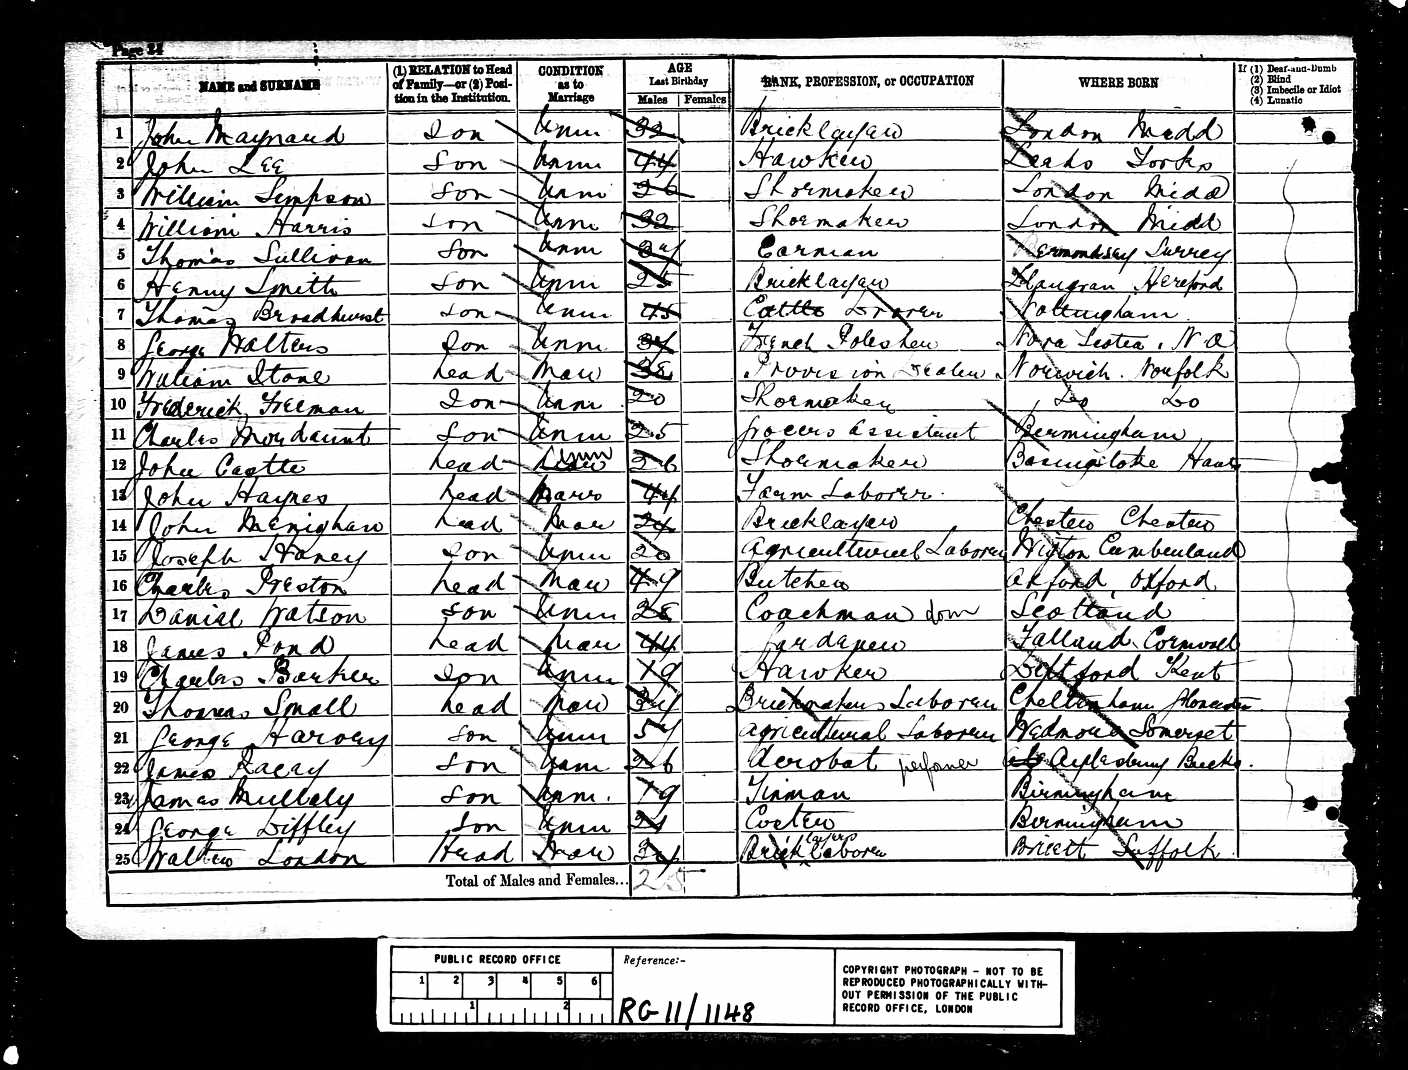 Page 24
NAME and SURNAME (1) RELATION to Head of Family—or (2) Position in the Institution. CONDITION as to Marriage AGE Last Birthday Males Females RANK, PROFESSION, or OCCUPATION WHERE BORN If (1) Deaf-and-Dumb (2) Blind (3) Imbecile or Idiot (4) Lunatic
1 John Maynard Son Unm 32 Bricklayer London Midd
2 John LEE Son Unm 44 Hawker Leeds Yorks
3 William Simpson Son Unm 26 Shoemaker London Midd
4 William Harris Son Unm 32 Shoemaker London Midd
5 Thomas Sullivan Son Unm Carman Bermondsey Surrey
6 Henry Smith Son Unm 25 Bricklayer Hereford
7 Thomas Broadhurst Son Unm 45 Cattle Drover Nottingham
8 George Walters Son Unm French Polisher Nova Scotia. N A
9 William Stone head Mar 38 Provision Dealer Norwich. Norfolk
10 Frederick Freeman Son Unm 20 Shoemaker Do Do
11 Charles Mordaunt Son Unm 25 grocers assistant Bermingham
12 John Castle head Unm 26 Shoemaker Basingstoke Hants
13 John Haynes head Marr 44 Farm Laborer.
14 John Menighan head Mar 24 Bricklayer Chester Chester
15 Joseph Haney Son Unm 20 agricultural Laborer Wigton Cumberland
16 Charles Preston head Mar 47 Butcher Oxford, Oxford
17 Danial Watson Son Unm 28 Coachman dom Scotland
18 James Pond head Mar 44 gardener Falland, Cornwall
19 Charles Barker Son Unm 19 Hawker Deptford Kent
20 Thomas Small head Mar 34 Brickmakers Laborer Cheltenham Gloucester
21 George Harvey Son Unm 57 agricultural Laborer Wedmore Somerset
22 James Lacey Son Unm 26 Acrobat performer Aylesbury Bucks.
23 James Mullaly Son Unm. 19 Tinman Birmingham
24 George Diffley Son Unm 21 Coster Birmingham
25 Walter London Head Mar 24 Bricklayers laborer Suffolk
Total of Males and Females... 25
PUBLIC RECORD OFFICE
1 2 3 4 5 6
1 2
Reference:-
RG 11/1148
COPYRIGHT PHOTOGRAPH - NOT TO BE
REPRODUCED PHOTOGRAPHICALLY WITH-
OUT PERMISSION OF THE PUBLIC
RECORD OFFICE, LONDON